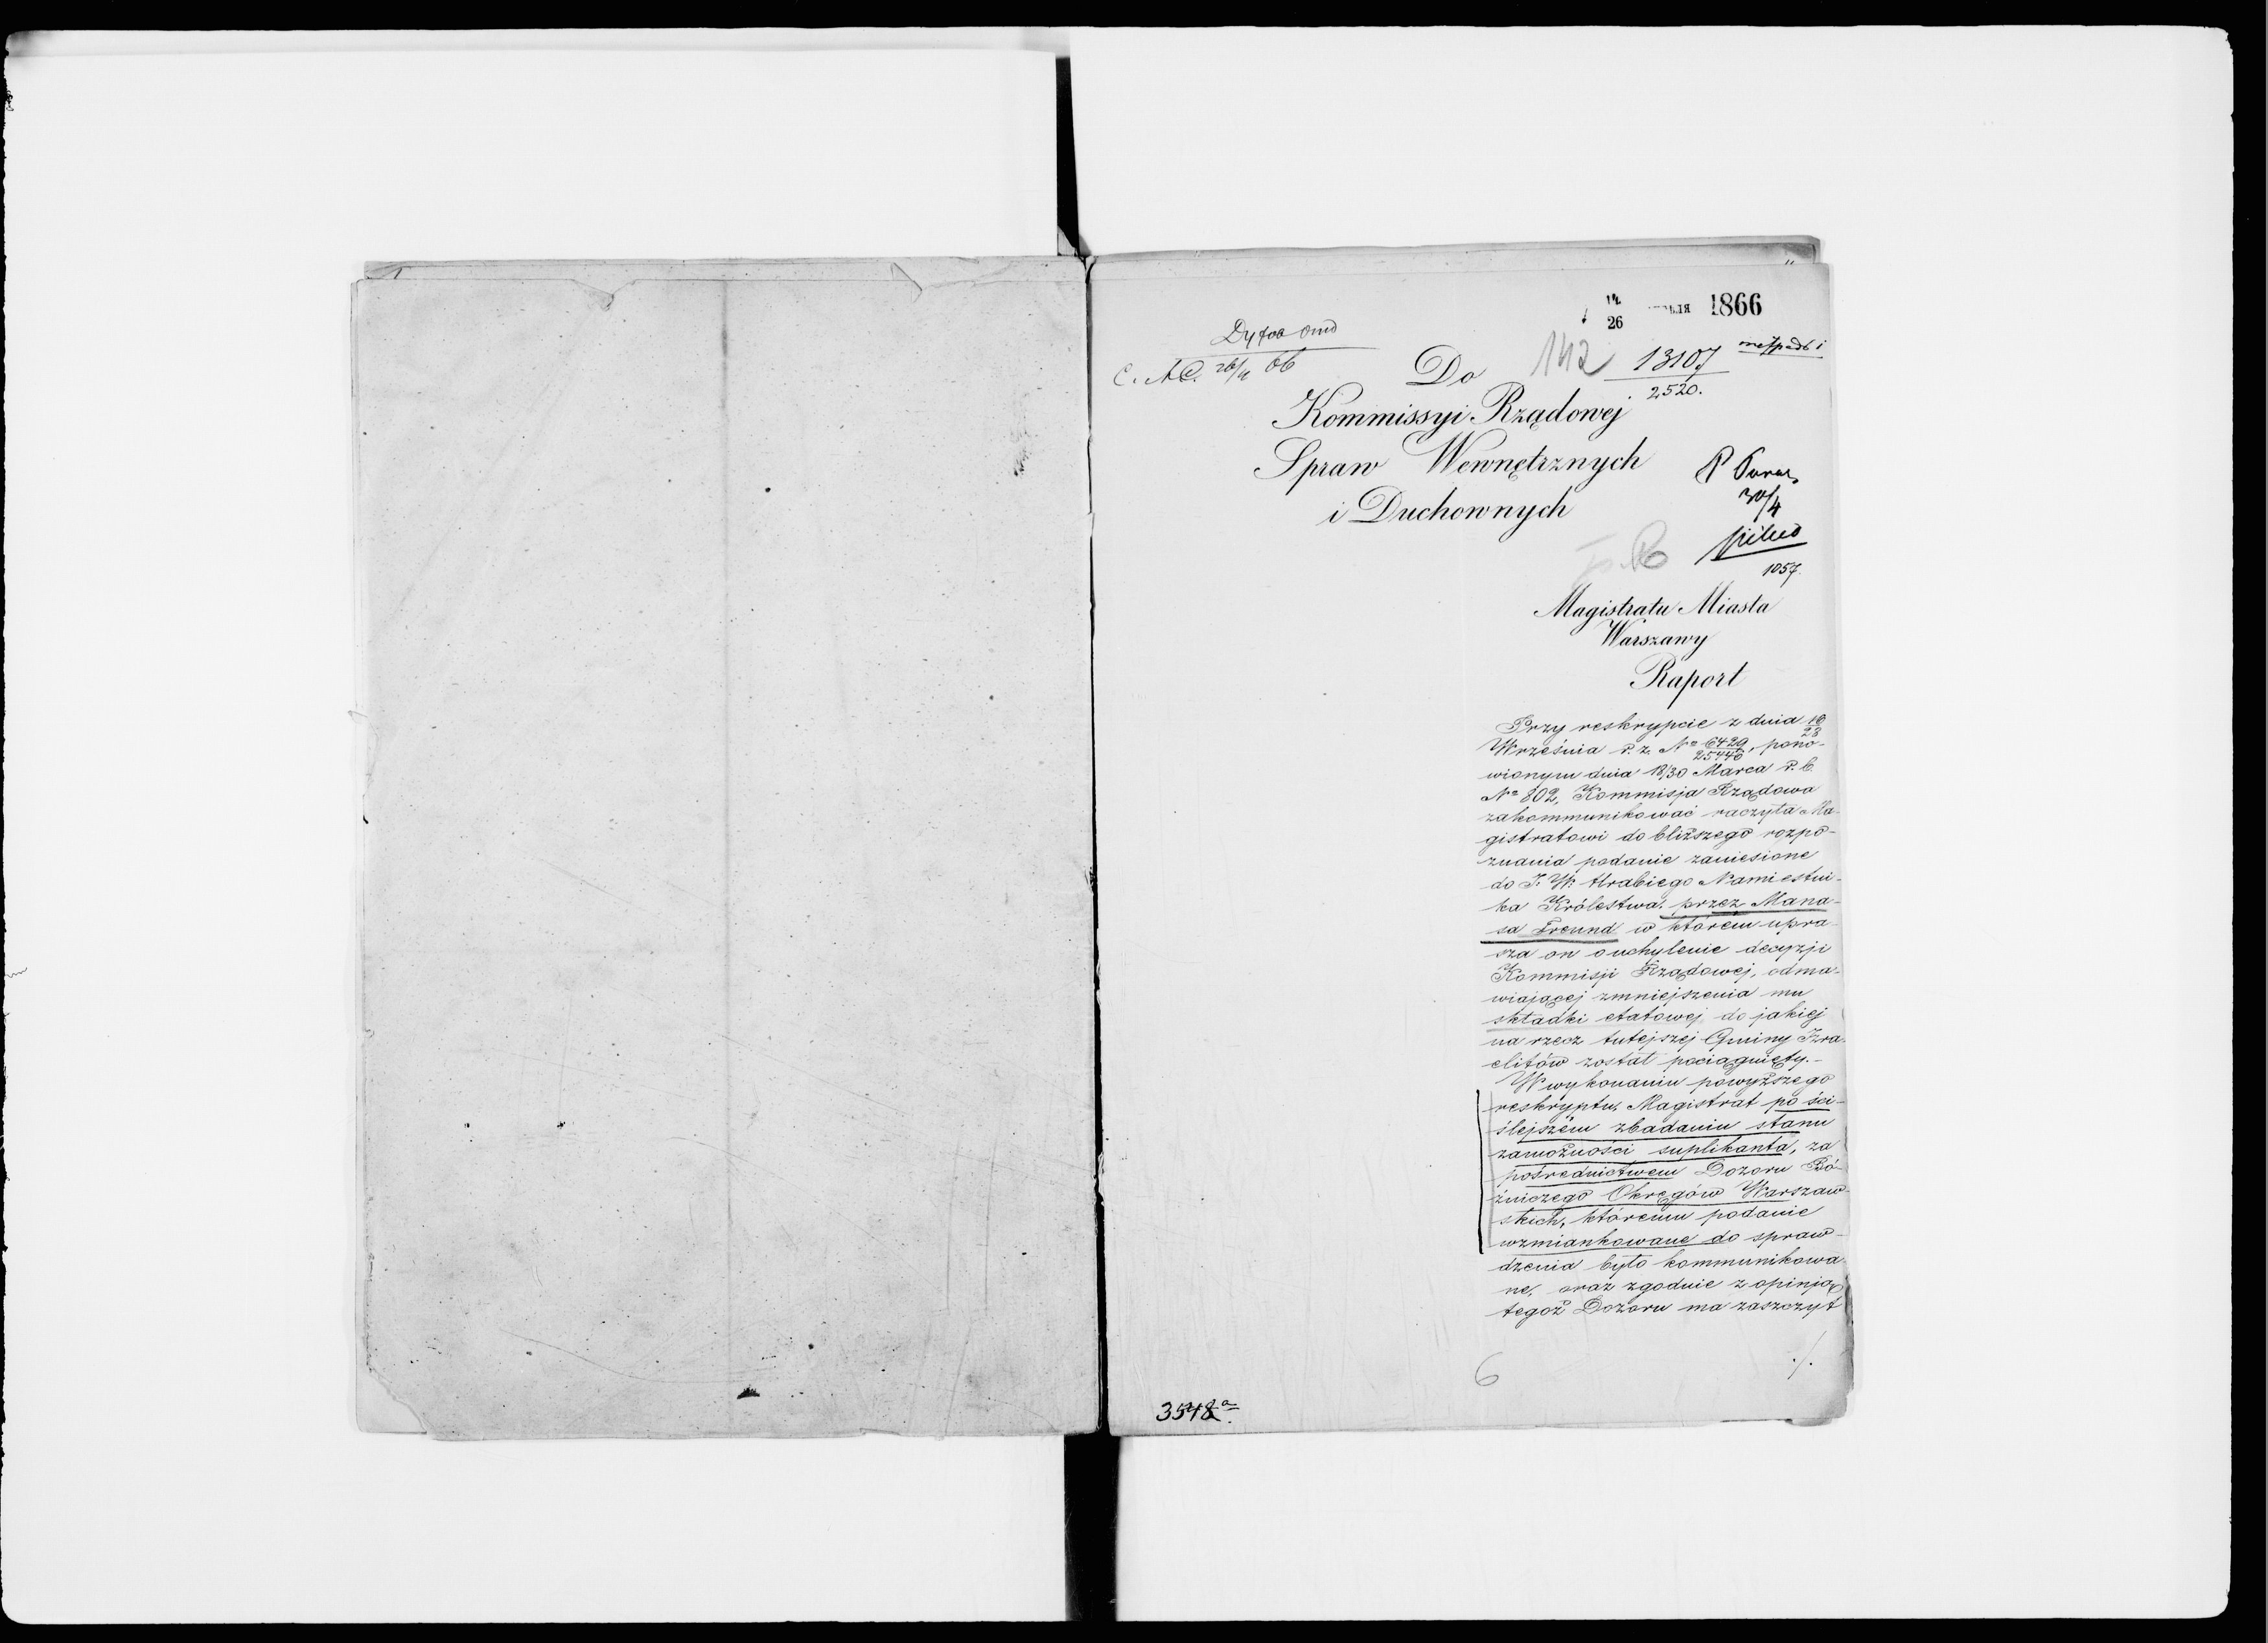 14
26
1866
142
13107
2520.
26/4 66
Do
Kommissyi Rządowej
Spraw Wewnętrznych
i Duchownych
30/4
pilno
1057.
Magistratu Miasta
Warszawy
Raport
Przy reskrypcie z dnia
Września r. z. № 6429/25440, pono-
wionym dnia 18/30 Marca r. b.
№ 802, Kommisja Rządowa
zakommunikować raczyła Ma-
gistratowi do bliższego rozpo-
znania podanie zaniesione
do J. W. Hrabiego Namiestni-
ka Królestwa, przez Mana-
sa Freund w którem upra-
sza on o uchylenie decyzji
Kommisji Rządowej, odma-
wiającej zmniejszenia mu
składki etatowej do jakiej
na rzecz tutejszej Gminy Izra-
elitów został pociągnięty. –
W wykonaniu powyższego
reskryptu, Magistrat po ści-
ślejszém zbadaniu stanu
zamożności suplikanta, za
pośrednictwem Dozoru Bó-
żniczego Okręgów Warszaw-
skich, któremu podanie
wzmiankowane do spraw-
dzenia było kommunikowa-
ne, oraz zgodnie z opinją
tegoż Dozoru ma zaszczyt
./.
6
3548a